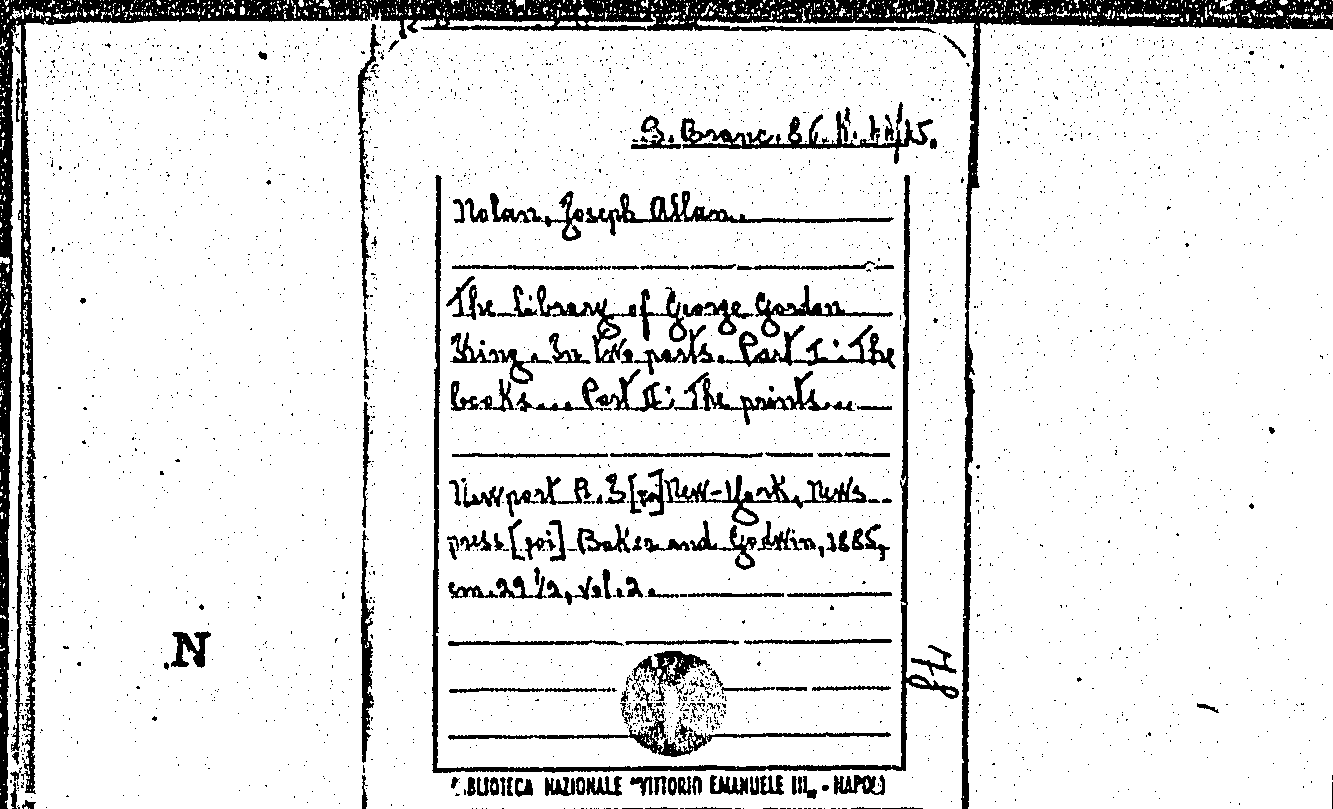 B. Branc. 86. K.
Nolan, Joseph Allan.
The Library of George Gordon
King. In two parts. Part I: The
books... Part II: The prints...
Newport R. I [poi] New-York, News
press [poi] Baker and Godwin, 1885,
cm. 29 1/2, vol. 2.
N
BIBLIOTECA NAZIONALE "VITTORIO EMANUELE III" - NAPOLI